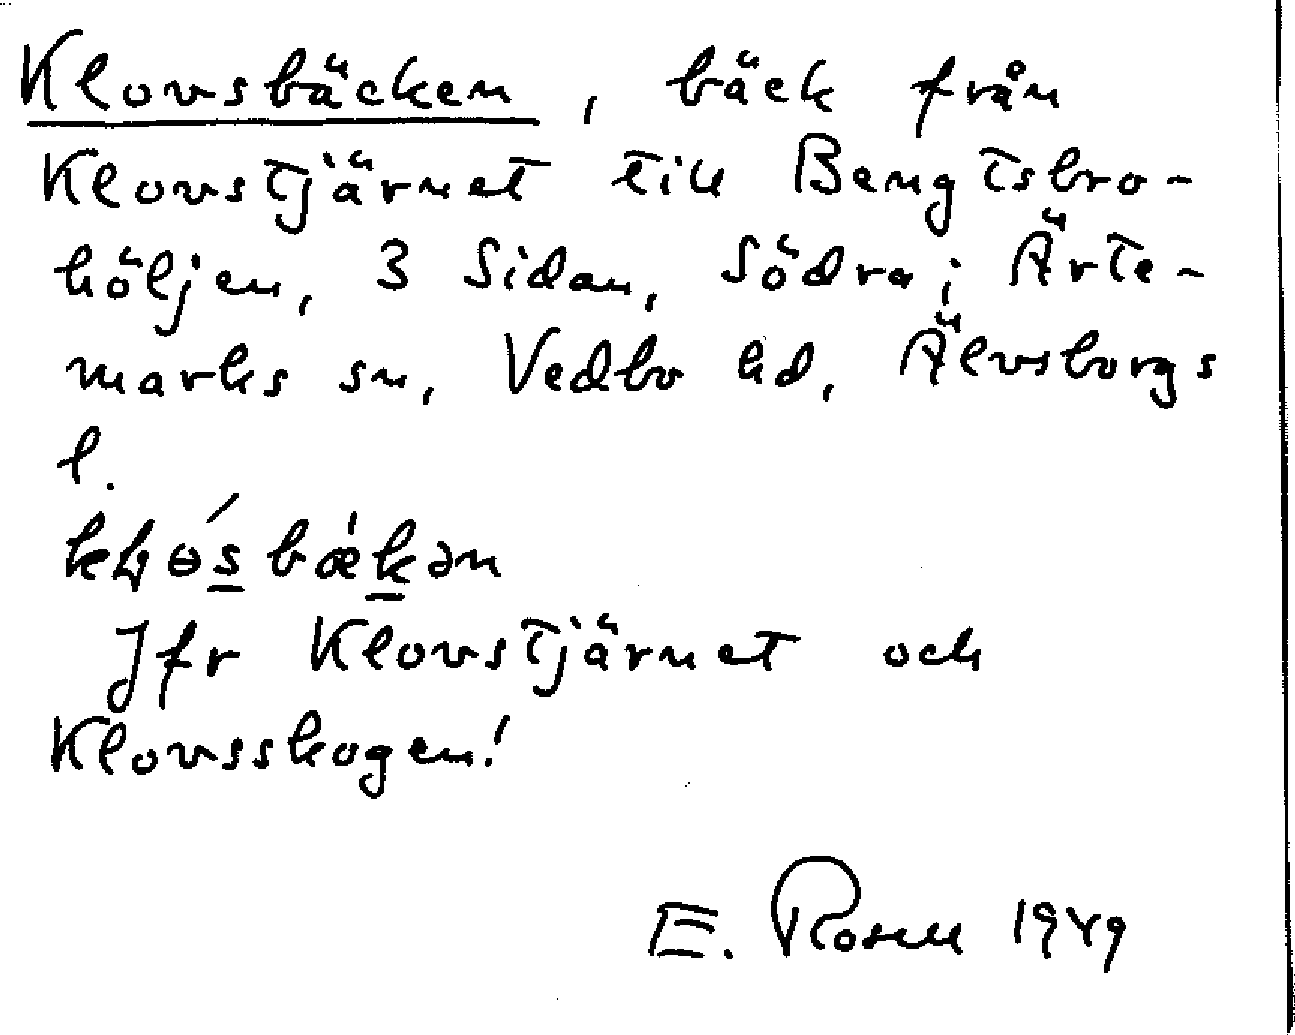 Klovsbäcken, bäck från
Klovstjärnet till Bengtsbro-
höljen, 3 Sidan, Södra; Ärte-
marks sn, Vedbo hd, Älvsborgs
l.
Jfr Klovstjärnet och
Klovsskogen!
E. Rosell 1949